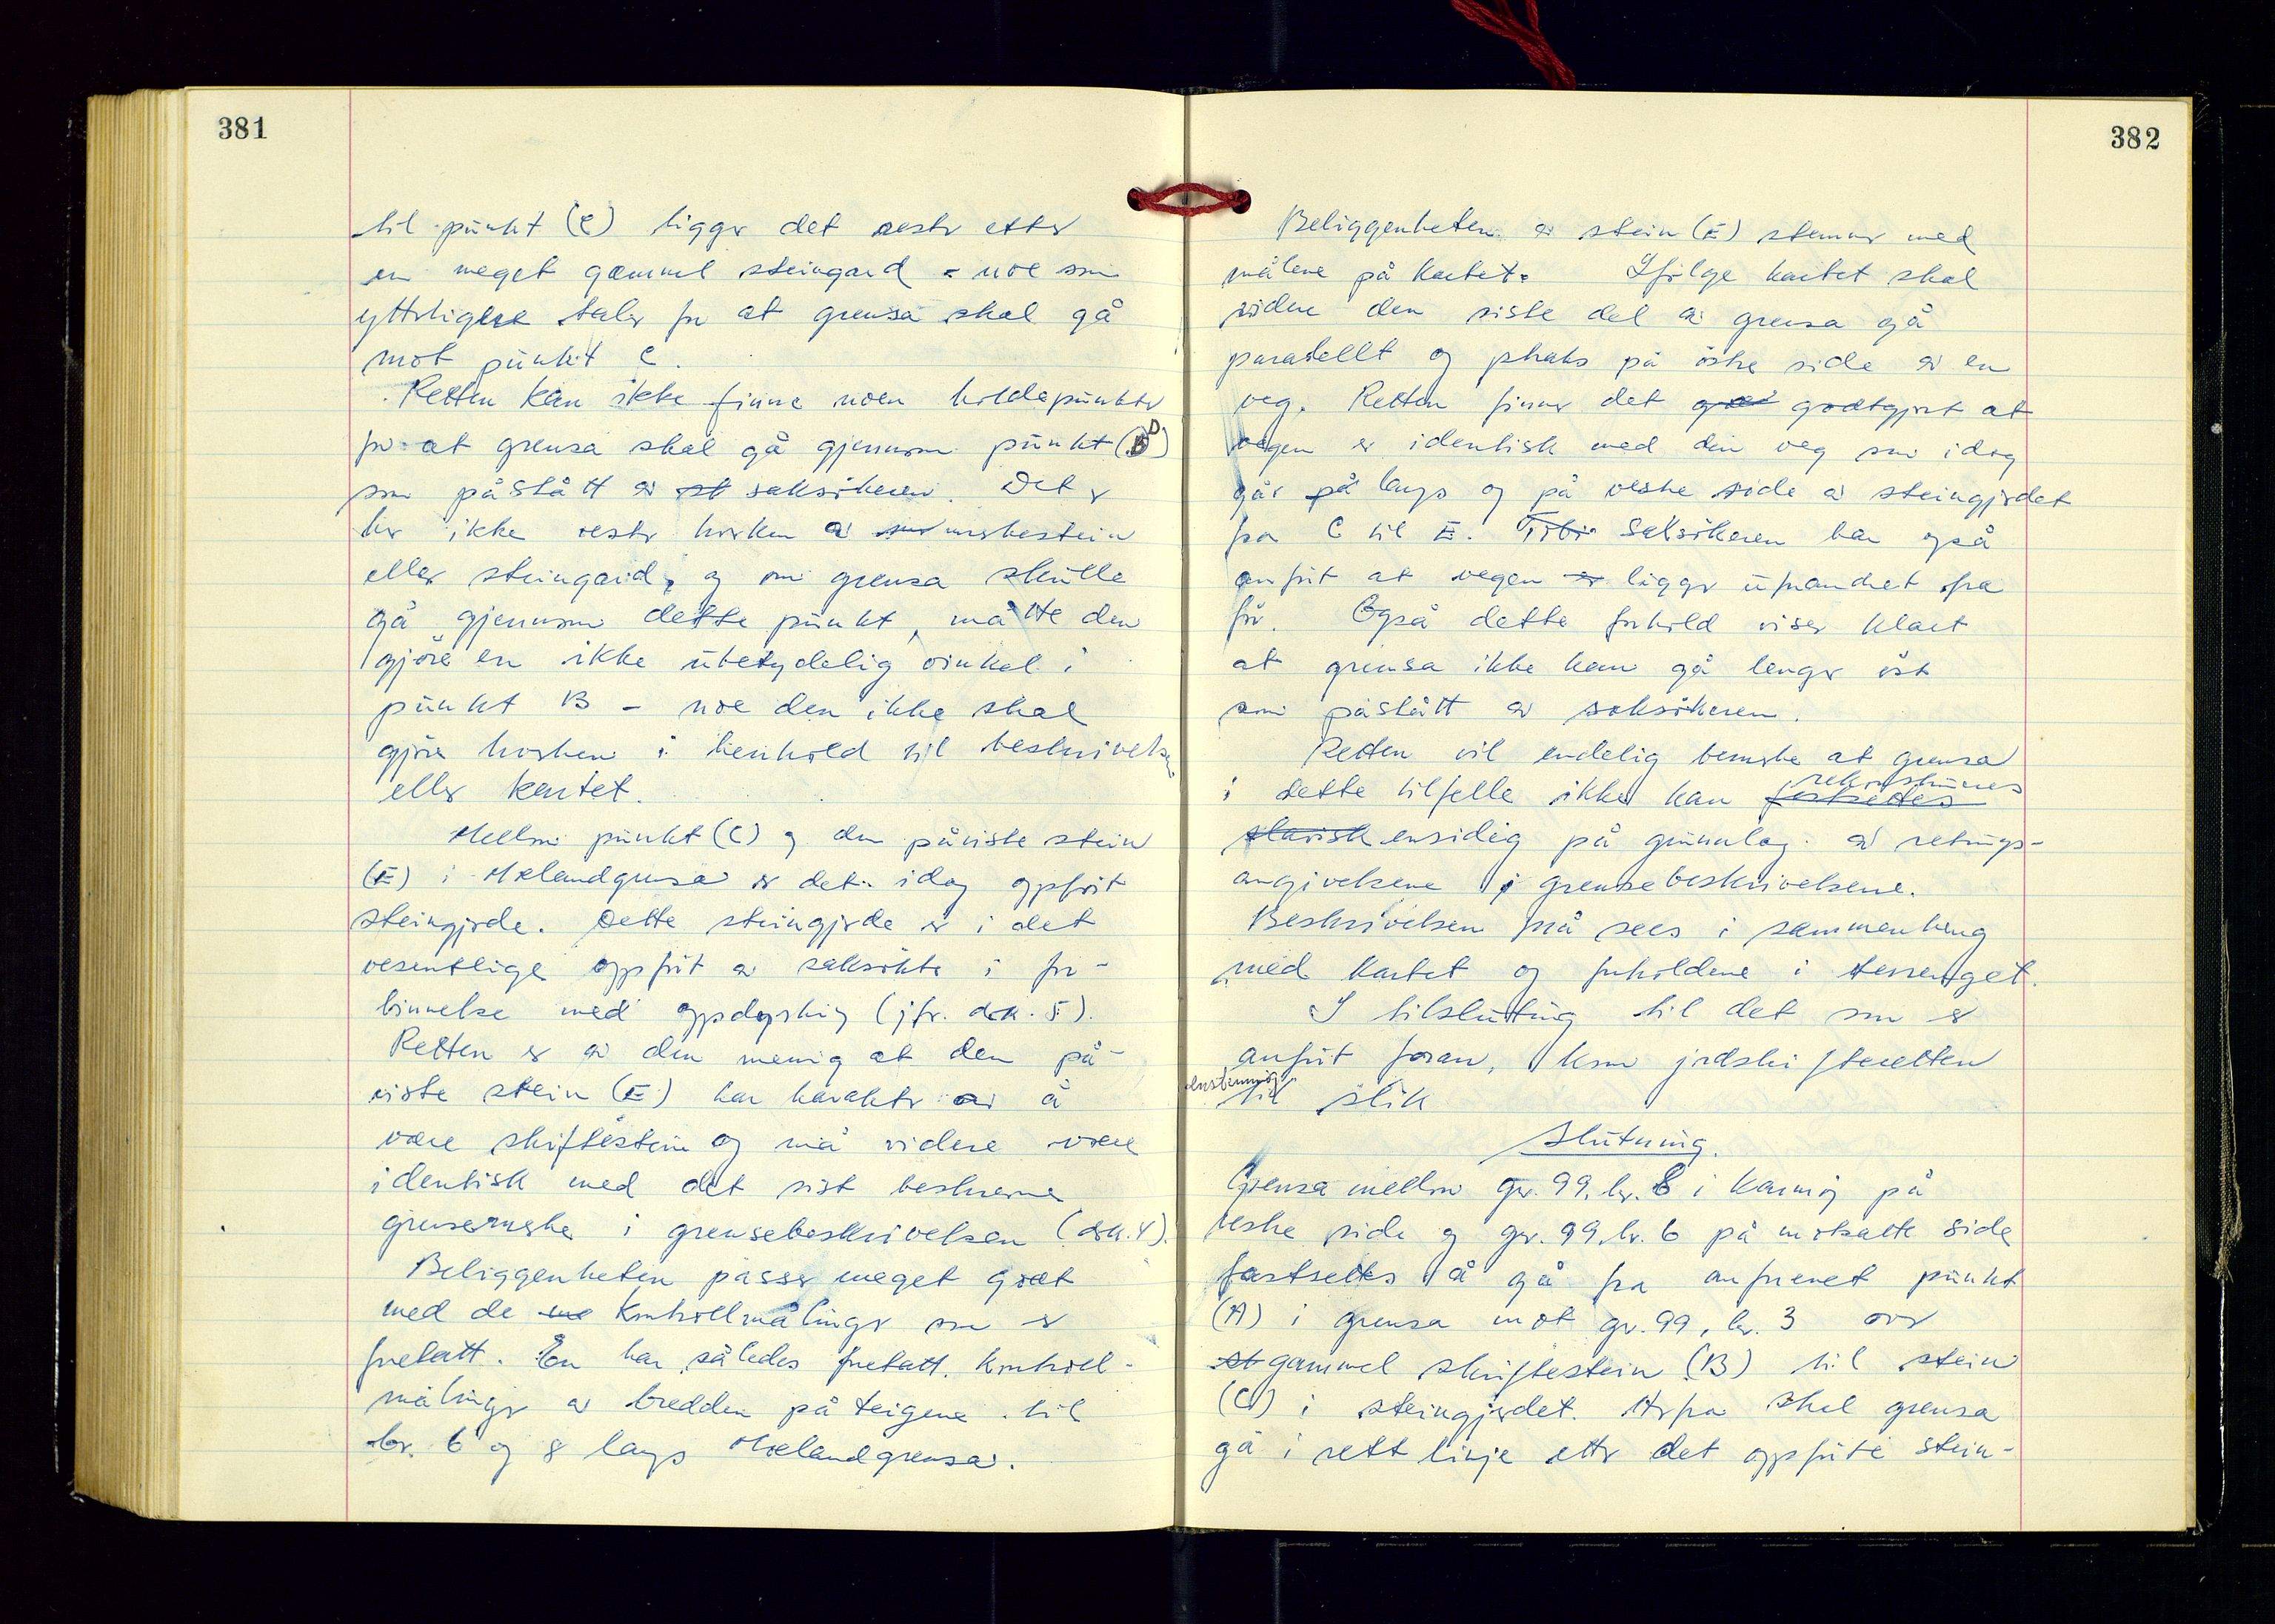 381
til punkt (C) ligger det rester etter
en meget gammel steingard - noe som
ytterligere taler for at grensa skal gå
mot punkt C.
Retten kan ikke finne noen holdepunkter
for at grensa skal gå gjennom punkt (D)
som påstått av st saksökeren. Det er
her ikke rester hverken av merkestein
eller steingard, og om grensa skulle
gå gjennom dette punkt, måtte den
gjöre en ikke ubetydelig vinkel i
punkt B - noe den ikke skal
gjöre hverken i henhold til beskrivelsen
eller kartet.
Mellom punkt (C) og den påviste stein
(E) i Mælandgrensa er det idag oppfört
steingjerde. Dette steingjerde er i det
vesentlige oppfört av saksökte i for-
binnelse med oppdyrking (jfr. dok. 5).
Retten er av den mening at den på-
viste stein (E) har karakter av å
være skiftestein og må videre være
identisk med det sist beskrevne
grensemerke i grensebeskrivelsen (dok. 4).
Beliggenheten passer meget godt
med de kontrollmålinger som er
foretatt. En har således foretatt kontroll-
målinger av bredden på teigene til
br. 6 og 8 langs Mælandgrensa.
382
Beliggenheten av stein (E) stemmer med
målene på kartet. Ifölge kartet skal
videre den siste del av grensa gå
parallellt og straks på östre side av en
veg. Retten finner det godtgjort at
vegen er identisk med den veg som idag
går på langs og på vestre side av steingjerdet
fra C til E. Saksökeren har også
anfört at vegen er ligger uforandret fra
för. Også dette forhold viser klart
at grensa ikke kan gå lenger öst
som påstått av saksökeren.
Retten vil endelig bemerke at grensa
rekonstrueres
i dette tilfelle ikke kan fastsettes
slavisk ensidig på grunnlag av retnings-
angivelsene i grensebeskrivelsene.
Beskrivelsen må sees i sammenheng
med kartet og forholdene i terrenget.
I tilslutning til det som er
anfört foran, kom jordskifteretten
enstemmig
til slik
Slutning.
Grensa mellom gr. 99, br. 8 i Karmöy på
vestre side og gr. 99, br. 6 på motsatte side
fastsettes å gå fra omforenet punkt
(A) i grensa mot gr. 99, br. 3 over
st gammel skiftestein (B) til stein
(C) i steingjerdet. Herfra skal grensa
gå i rett linje etter det oppförte stein-